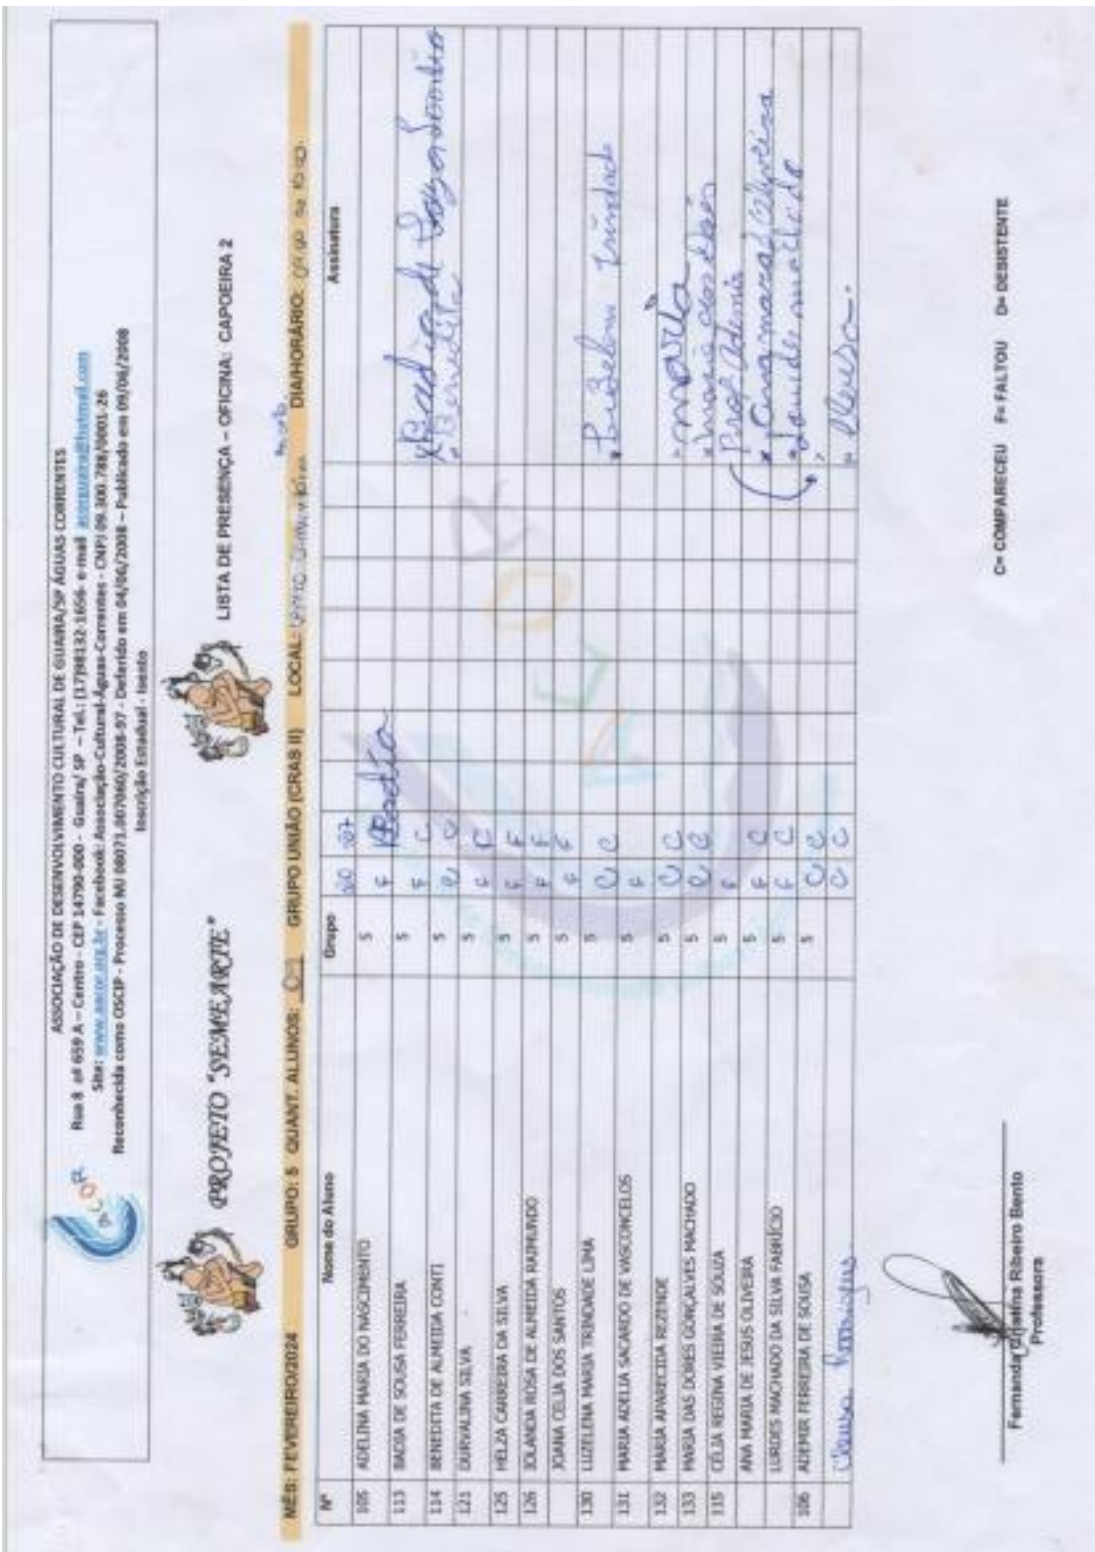 ASSOCIAÇÃO DE DESENVOLVIMENTO CULTURAL DE GUAIRA/SP ÁGUAS CORRENTES
Rua 8 nº 659 A – Centro - CEP 14790-000 - Guaíra/ SP – Tel.: (17)98132-1656 e-mail
Site: www.aacor.org.br - Facebook: Associação-Cultural-Águas-Correntes - CNPJ 09.300.788/0001-26
Reconhecida como OSCIP - Processo MJ 08071.007060/2008-97 - Deferido em 04/06/2008 – Publicado em 09/06/2008
Inscrição Estadual - Isento
ACOR
PROJETO "SEMEARTE"
LISTA DE PRESENÇA – OFICINA: CAPOEIRA 2
MÊS: FEVEREIRO/2024 GRUPO: 5 QUANT. ALUNOS: GRUPO UNIÃO (CRAS II) LOCAL: DIA/HORÁRIO:
Nº Nome do Aluno Grupo Assinatura
105 ADELINA MARIA DO NASCIMENTO 5 F
113 BADIA DE SOUSA FERREIRA 5 F C
114 BENEDITA DE ALMEIDA CONTI 5 C C
121 DURVALINA SILVA 5 F C
125 HELZA CARREIRA DA SILVA 5 F F
126 IOLANDA ROSA DE ALMEIDA RAIMUNDO 5 F F
JOANA CELIA DOS SANTOS 5 F F
130 LUZELENA MARIA TRINDADE LIMA 5 C C
131 MARIA ADELIA SACARDO DE VASCONCELOS 5 F
132 MARIA APARECIDA REZENDE 5 C C maria
133 MARIA DAS DORES GONÇALVES MACHADO 5 C C
115 CÉLIA REGINA VIEIRA DE SOUZA 5 F
ANA MARIA DE JESUS OLIVEIRA 5 F C
LURDES MACHADO DA SILVA FABRÍCIO 5 F C
106 ADEMIR FERREIRA DE SOUSA 5 C C
Rodrigues C C
Fernanda Grijalina Ribeiro Bento
Professora
C= COMPARECEU F= FALTOU D= DESISTENTE